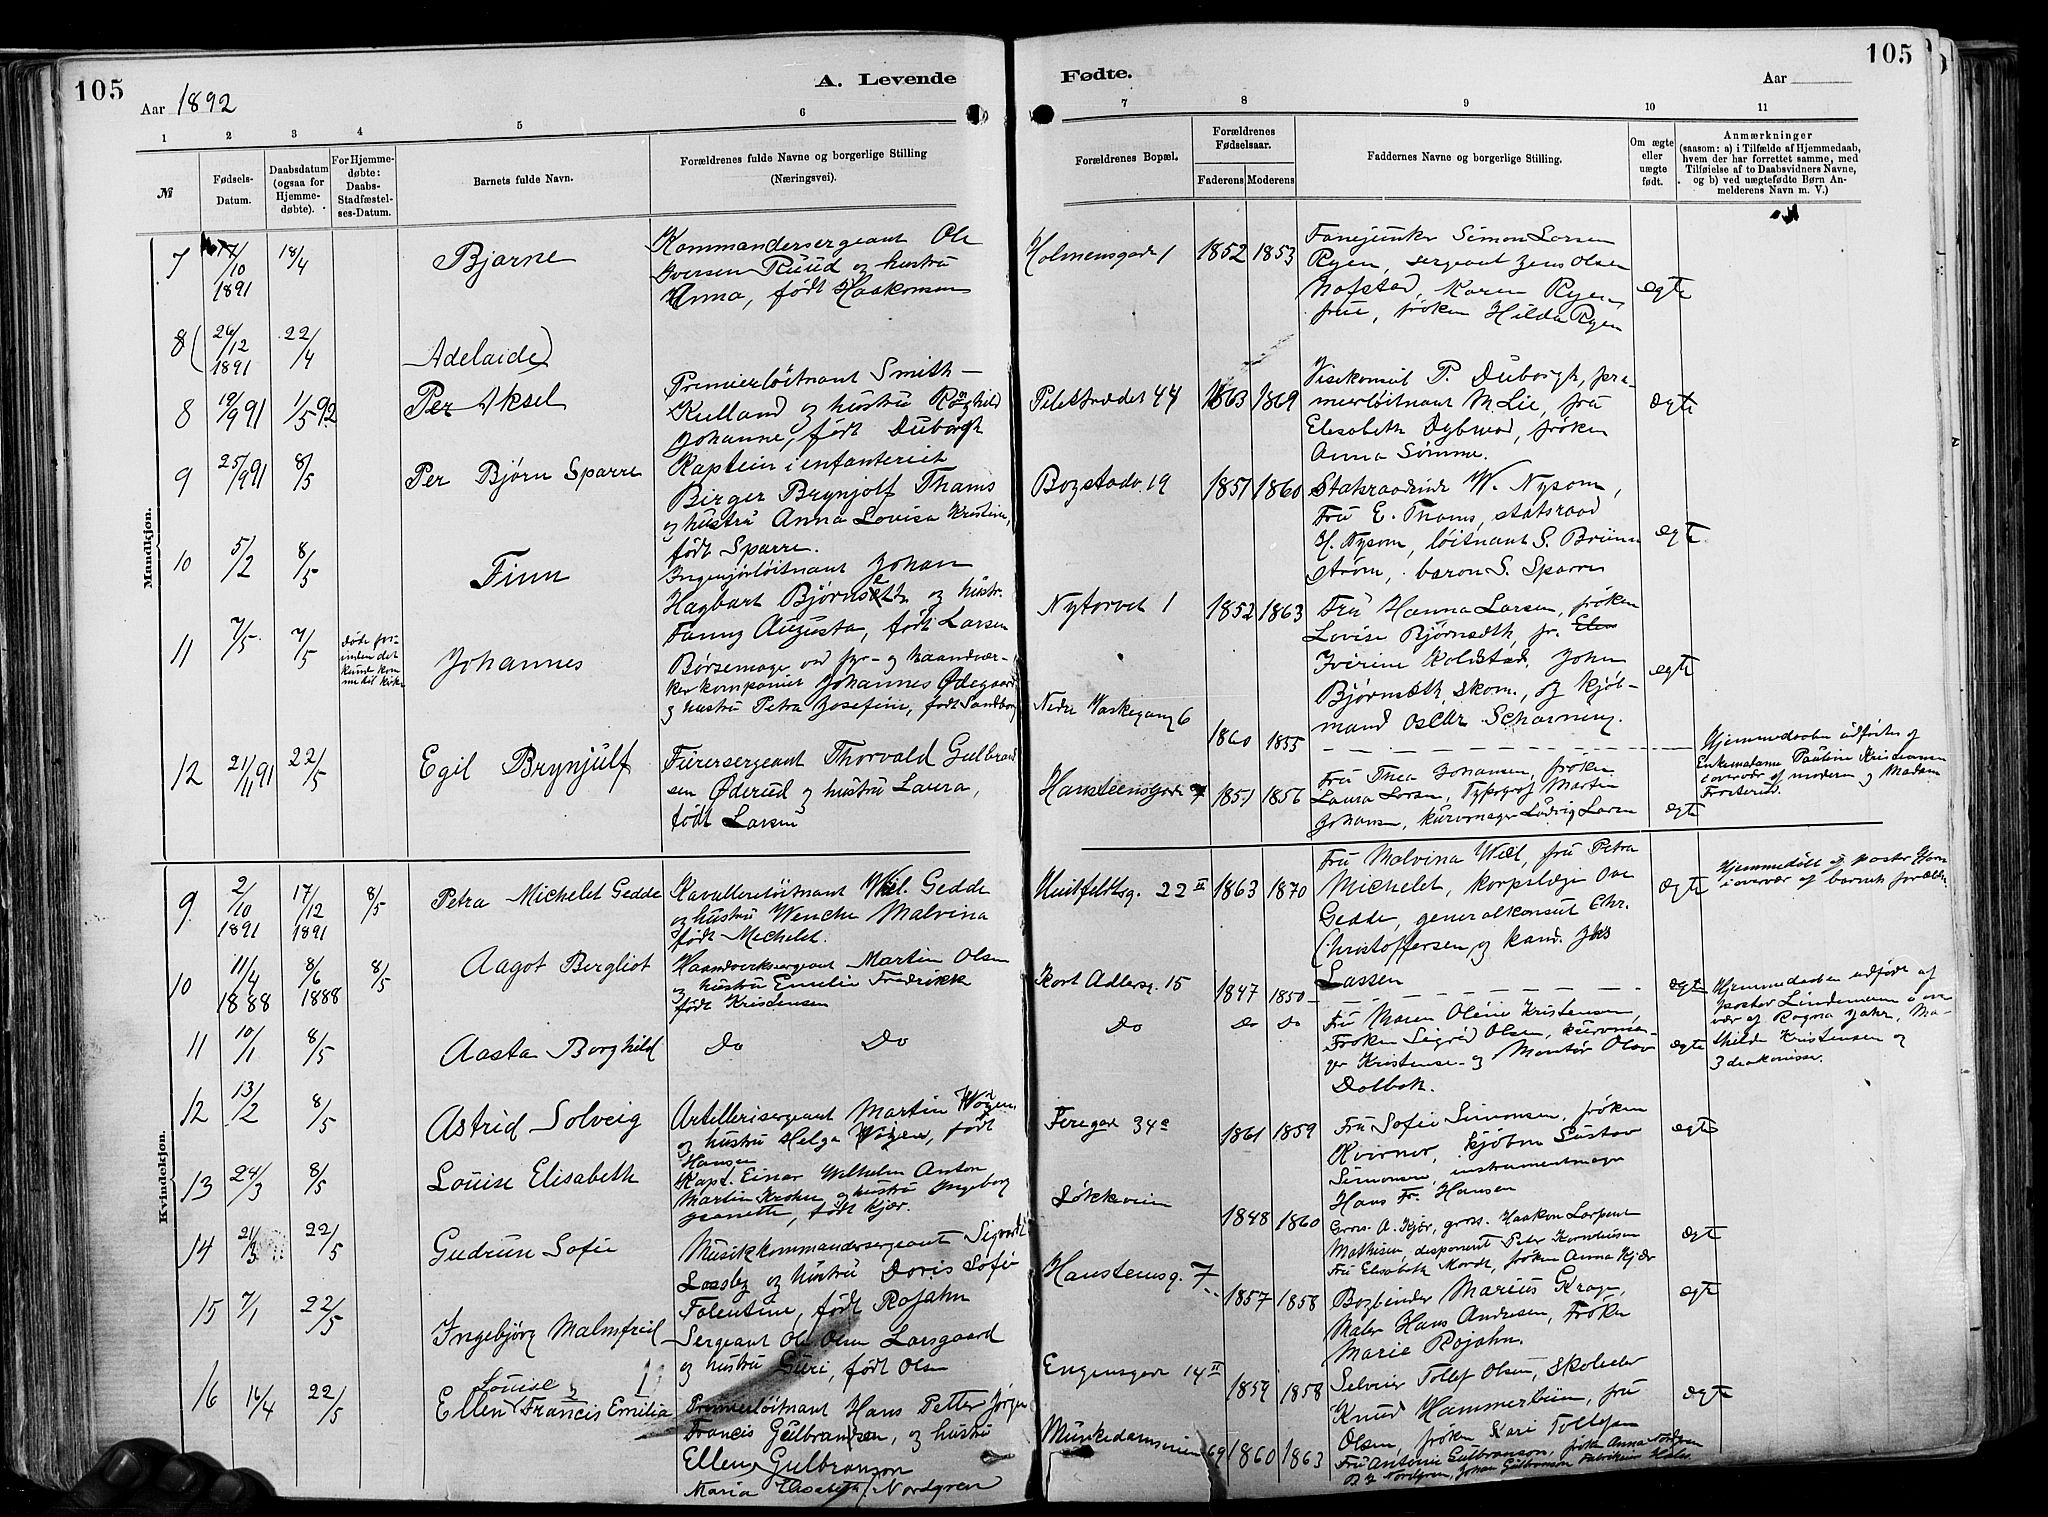 105
A. Levende
Fødte.
105
Aar 1892
Aar
1 2 3 4 5 6 7 8 9 10 11
№
Fødsels-
Datum.
Daabsdatum
(ogsaa for
Hjemme-
døbte).
For Hjemme-
døbte:
Daabs-
Stadfæstel-
ses-Datum.
Barnets fulde Navn.
Forældrenes fulde Navne og borgerlige Stilling
(Næringsvei).
Forældrenes Bopæl.
Forældrenes
Fødselsaar.
Faderens Moderens
Faddernes Navne og borgerlige Stilling.
Om ægte
eller
uægte
født.
Anmærkninger
(saasom: a) i Tilfælde af Hjemmedaab,
hvem der har forrettet samme, med
Tilføielse af to Daabsvidners Navne,
og b) ved uægtefødte Børn An-
melderens Navn m. V.)
Mandkjøn.
7
17/10
1891
18/4
Bjarne
Kommandersergeant Ole
Iversen Ruud og hustru
Anna, født Haakonsen
Holmensgade 1
1852 1853
Fanejunker Simon Larsen
Ryen, sergeant Jens Olsen
Hofstad, Karen Ryen
frue, frøken Hilda Ryen
ægte
8
26/12
1891
22/4
Adelaide)
8
19/9 91
1/5 92
Per Aksel
Premierløitnant Smith-
Kielland og hustru Ragnhild
Johanne, født Duborgh
Pilestrædet 44
1863 1869
Visekonsul P. Duborgh, pre-
mierløitnant M. Lie, fru
Elisabeth Dybwad, frøken
Anna Sømme.
ægte
9
25/9 91
8/5
Per Bjørn Sparre
Kaptein i infanteriet
Birger Brynjolf Thams
og hustru Anna Lovisa Kristine,
født Sparre.
Bogstadv. 19
1851 1860
Statsraadinde W. Nysom,
Fru E. Thams, statsraad
H. Nysom, løitnant S. Brun
strøm, baron S. Sparre
ægte
10
5/2
8/5
Finn
Ingeniørløitnant Johan
Hagbart Bjørnseth og hustr.
Fanny Augusta, født Larsen
Nytorvet 1
1852 1863
Fru Hanna Larsen, frøken
Lovise Bjørnseth, fr.
Iverine Kolstad, John
Bjørnseth, skom., og kjøb-
mand Oscar Scharning.
ægte
11
7/5
7/5
døde for-
inden det
kunde kom-
me til kirke
Johannes
Børsemager ved fyr- og haandvær-
kerkompaniet Johannes Ødegaard
og hustru Petra Josefine, født Sandborg
Nedre Vaskegang 6
1860 1855
12
21/1 91
22/5
Egil Brynjulf
Furersergeant Thorvald Gulbrand
sen Øderud og hustru Laura,
født Larsen
Hansteensgade 7
1851 1856
Fru Thea Johansen, frøken
Laura Larsen, Typograf Martin
Johansen, kurvmager Ludvig Larsen
ægte
Hjemmedaaben udførtes af
Enkemadame Pauline Kristiansen
i overvær af moderen og Madam
Kvindekjøn.
9
2/10
1891
17/12
1891
8/5
Petra Michelet Gedde
Kavalleriløitnant Wil. Gedde
og hustru Wenche Malvina
født Michelet.
Huitfeldtsg. 22 II
1863 1870
Fru Malvina Wiel, fru Petra
Michelet, korpslæge Ove
Gedde, generalkonsul Chr.
Christoffersen, og kand. Jhs
Lassen
ægte
Hjemmedøbt af pastor Horn
i overvær af barnets forældre
10
11/4
1888
8/6
1888
8/5
Aagot Bergliot
Haandverkssergeant Martin Olsen
og hustru Emelie Fredrikke
født Kristensen
Kort Adlersg. 15
1847 1850
ægte
Hjemmedaaben udførte af
pastor Lindemann i over
vær af Ragna Jahr, Ma-
thilde Kristensen og
3 diakonisser.
11
10/1
8/5
Aasta Borghild
Do Do
Do
Do Do
Fru Maren Oline Kristensen,
Frøken Sigrid Olsen, kurvma-
ger Kristense- og Montør Olav
Dolbak.
ægte
12
13/2
8/5
Astrid Solveig
Artillerisergeant Martin Wogen
og hustru Helga Wogen, født
Hansen
34 a
1861 1859
Fru Sofie Simonsen, frøken
Kverner, kjøbm Gustav
Simonsen, instrumentmager
Hans Fr. Hansen
ægte
13
24/3
8/5
Louise Elisabeth
Kapt. Einar Wilhelm Anton
Martin Krohn og hustru Ingeborg
Jeanette, født Kjær.
Løkkeveien
1848 1860
Gros. A. Kjær, gross. Haakon Larpent
Mathisen, disponent Peter Kornelius
Fru Elisabeth Mordt, frøken Anna Kjær
ægte
14
21/3
22/5
Gudrun Sofie
Musikkommandersergeant Sigvart
Lassby og hustru Doris Sofie
Tolentine, født Rojahn
Hansteensg. 7
1857 1858
Bogbinder Marius Krag,
Maler Hans Andresen, Frøken
Marie Rojahn.
ægte
15
7/1
22/5
Ingebjørg Malmfrid
Sergeant Ole Olsen Larsgaard
og hustru Guri, født Olsen
Engensgade 14 II
1859 1858
Selveier Tollef Olsen, skoleeler
Knud Hammerbøen, fru
Olsen, frøken Kari Tollefsen
ægte
16
16/4
22/5
Louise
Ellen Francis Emilia
Premierløitnant Hans Petter Jørgen
Francis Gulbranson, og hustru
Ellen Gulbranson
Maria Elisabeth f. Nordgren
Munkedamsveien 69
1860 1863
Fru Antonie Gulbranson, frøken Anna Nordgren
Nordgren, Johan Gulbranson Fabrikeier